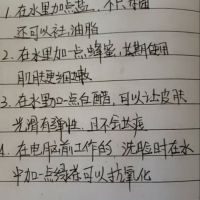 1.在水里加点盐，不仅
还可以祛油脂
2.在水里加一点蜂蜜，长期使用
肌肤更细嫩
3.在水里加一点白醋，可以让皮肤
光滑有弹性，且不会出痘
4.在电脑前工作的，洗脸时在水
中加一点绿茶可以抗氧化